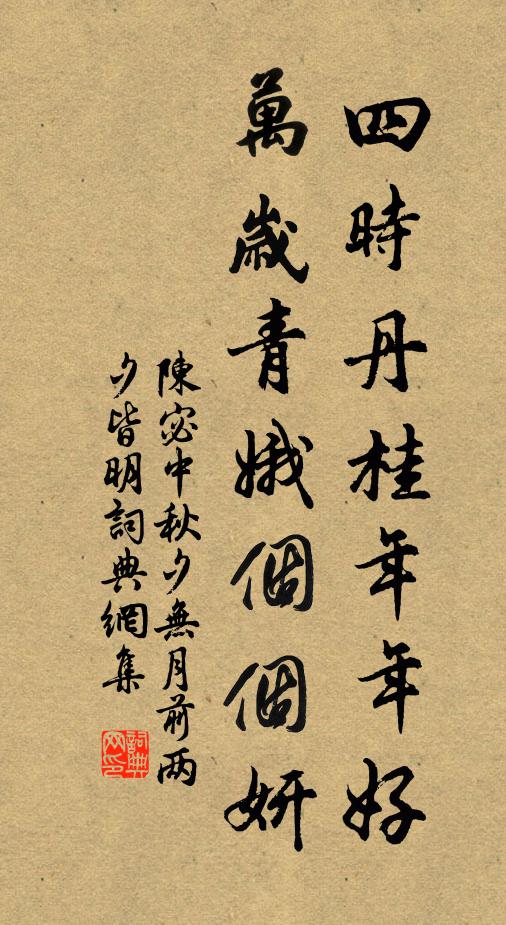 四時丹桂年年好
萬歲青娥個個妍
陳宓中秋夕無月前兩
夕皆明詞典網集
詞典网印